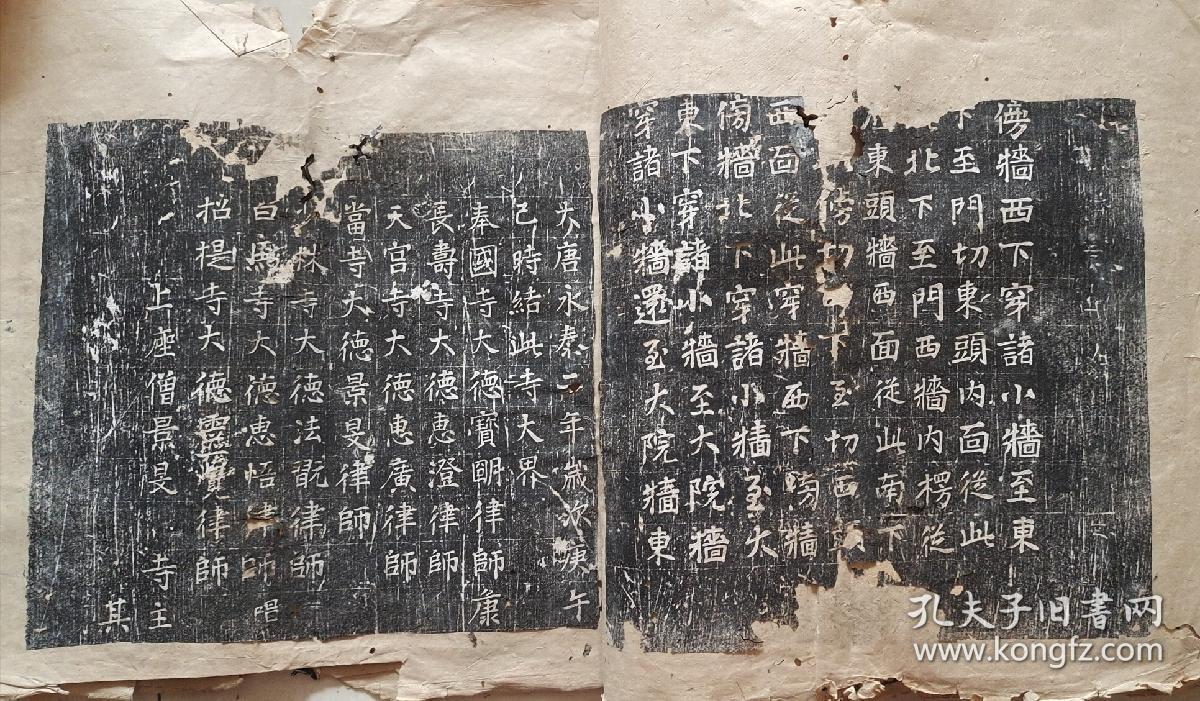 傍牆西下穿諸小牆至東
下至門切東頭内面從此
北下至門西牆内楞從
東頭牆西面從此南下
傍切下至切西
西面從此穿牆西下傍牆
傍牆北下穿諸小牆至大
東下穿諸小牆至大院牆
穿諸小牆還至大院牆東
大唐永泰二年歲次庚午
己時結此寺大界
奉國寺大德寶明律師 康
長壽寺大德惠澄律師
天宮寺大德惠廣律師
當寺大德景旻律師
林寺大德法翫律師
白馬寺大德惠悟律師 唱
招提寺大德靈覺律師
上座僧景旻 寺主
其
孔夫子旧書网
www.kongfz.com